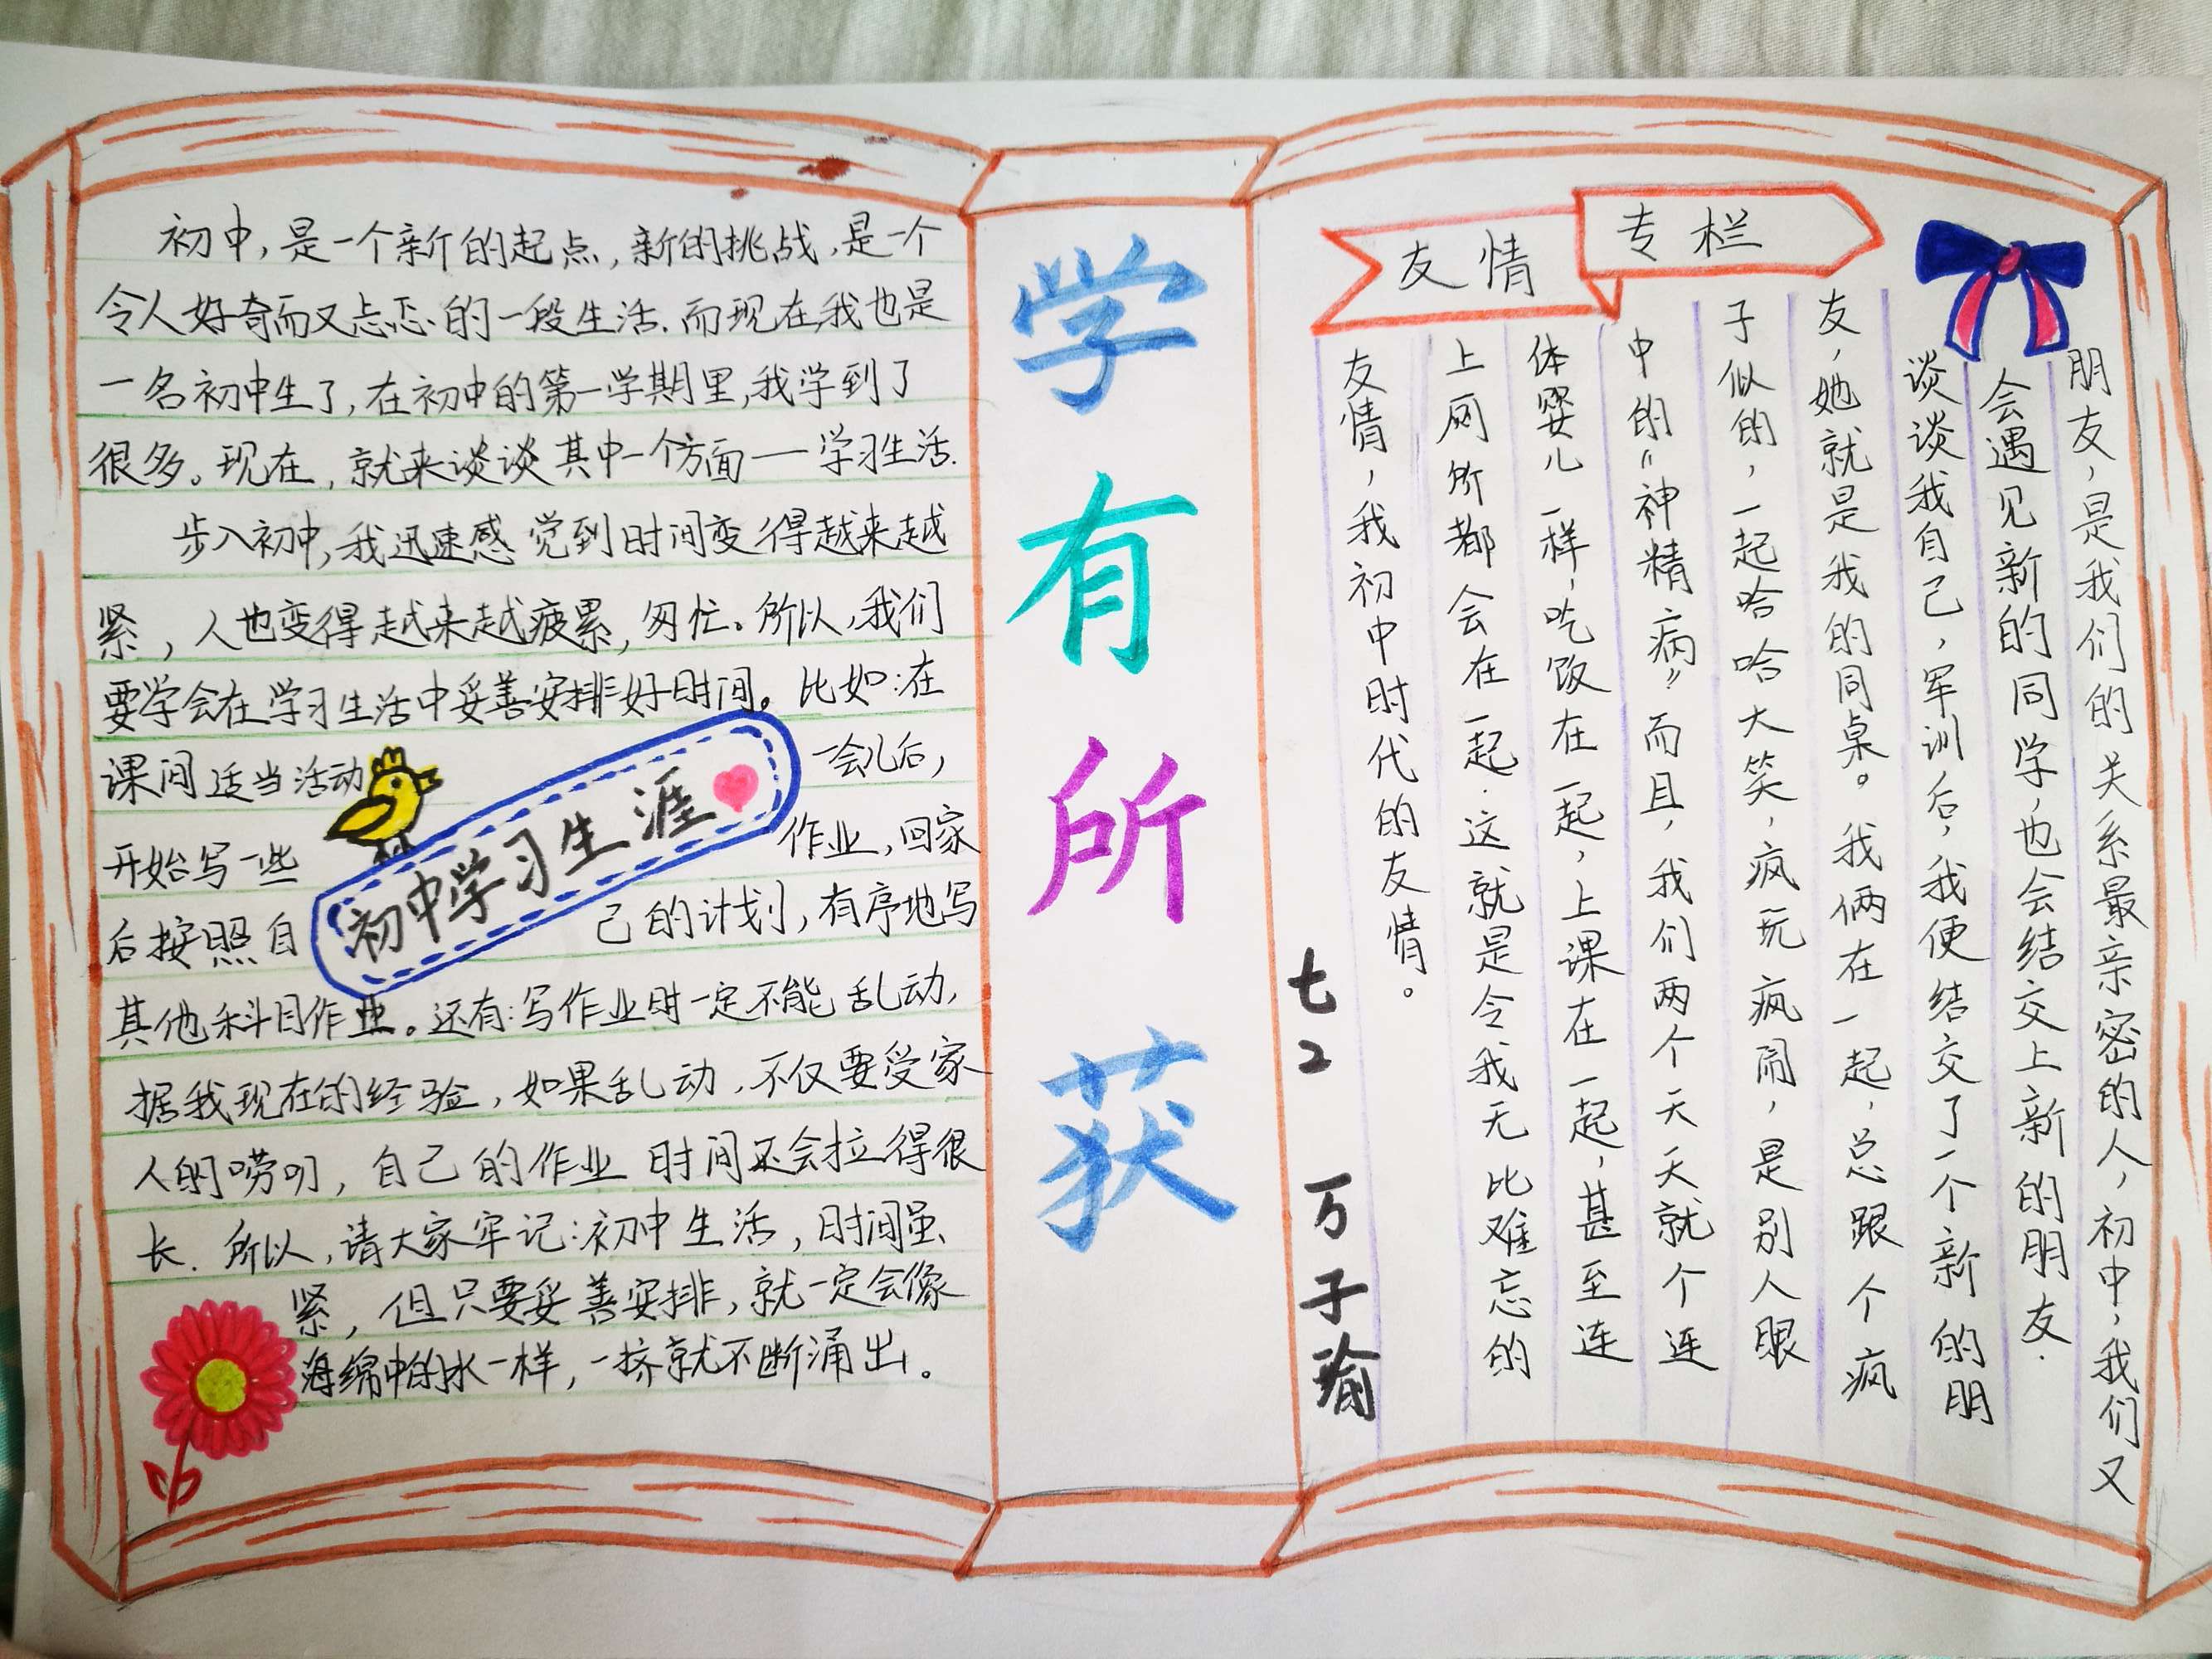 初中,是一个新的起点,新的挑战,是一个
令人好奇而又忐忑的一段生活.而现在,我也是
一名初中生了,在初中的第一学期里,我学到了
很多。现在,就来谈谈其中一个方面一学习生活.
步入初中,我迅速感觉到时间变得越来越
紧,人也变得越来越疲累,匆忙。所以,我们
要学会在学习生活中妥善安排好时间。比如:在
课间适当活动一会儿后,
开始写一些作业,回家
后按照自己的计划,有序地写
其他科目作业。还有:写作业时一定不能乱动,
据我现在的经验,如果乱动,不仅要受家
人的唠叨,自己的作业时间还会拉得很
长.所以,请大家牢记:初中生活,时间虽
紧,但只要妥善安排,就一定会像
海绵中的水一样,一挤就不断涌出。
初中学习生涯
学有所获
友情专栏
朋友,是我们的关系最亲密的人,初中,我们又
会遇见新的同学,也会结交上新的朋友.
谈谈我自己,军训后,我便结交了一个新的朋
友,她就是我的同桌。我俩在一起,总跟个疯
子似的,一起哈哈大笑,疯玩疯闹,是别人眼
中的"神精病"而且,我们两个天天就个连
体婴儿一样,吃饭在一起,上课在一起,甚至连
上厕所都会在一起.这就是令我无比难忘的
友情,我初中时代的友情。
七2 万子瑜